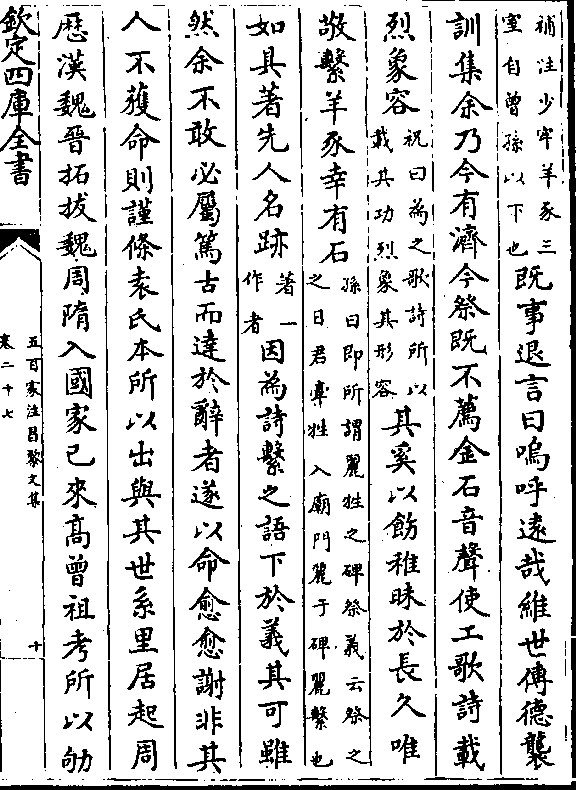 補注少牢羊豕三
室自曾孫以下也
既事退言曰嗚呼遠哉維世傳德襲
訓集余乃今有濟今祭既不薦金石音聲使工歌詩載
烈象容
祝曰為之歌詩所以
載其功烈象其形容
其奚以飭稚昧於長久唯
敬繫羊豕幸有石
孫曰即所謂麗牲之碑祭義云祭之
之日君牽牲入廟門麗于碑麗繫也
如具著先人名跡
著一
作者
因為詩繫之語下於義其可雖
然余不敢必屬篤古而達於辭者遂以命愈愈謝非其
人不獲命則謹條袁氏本所以出與其世系里居起周
歷漢魏晉拓拔魏周隋入國家已來髙曾祖考所以劬
欽定四庫全書
五百家注昌黎文集
卷二十七
十